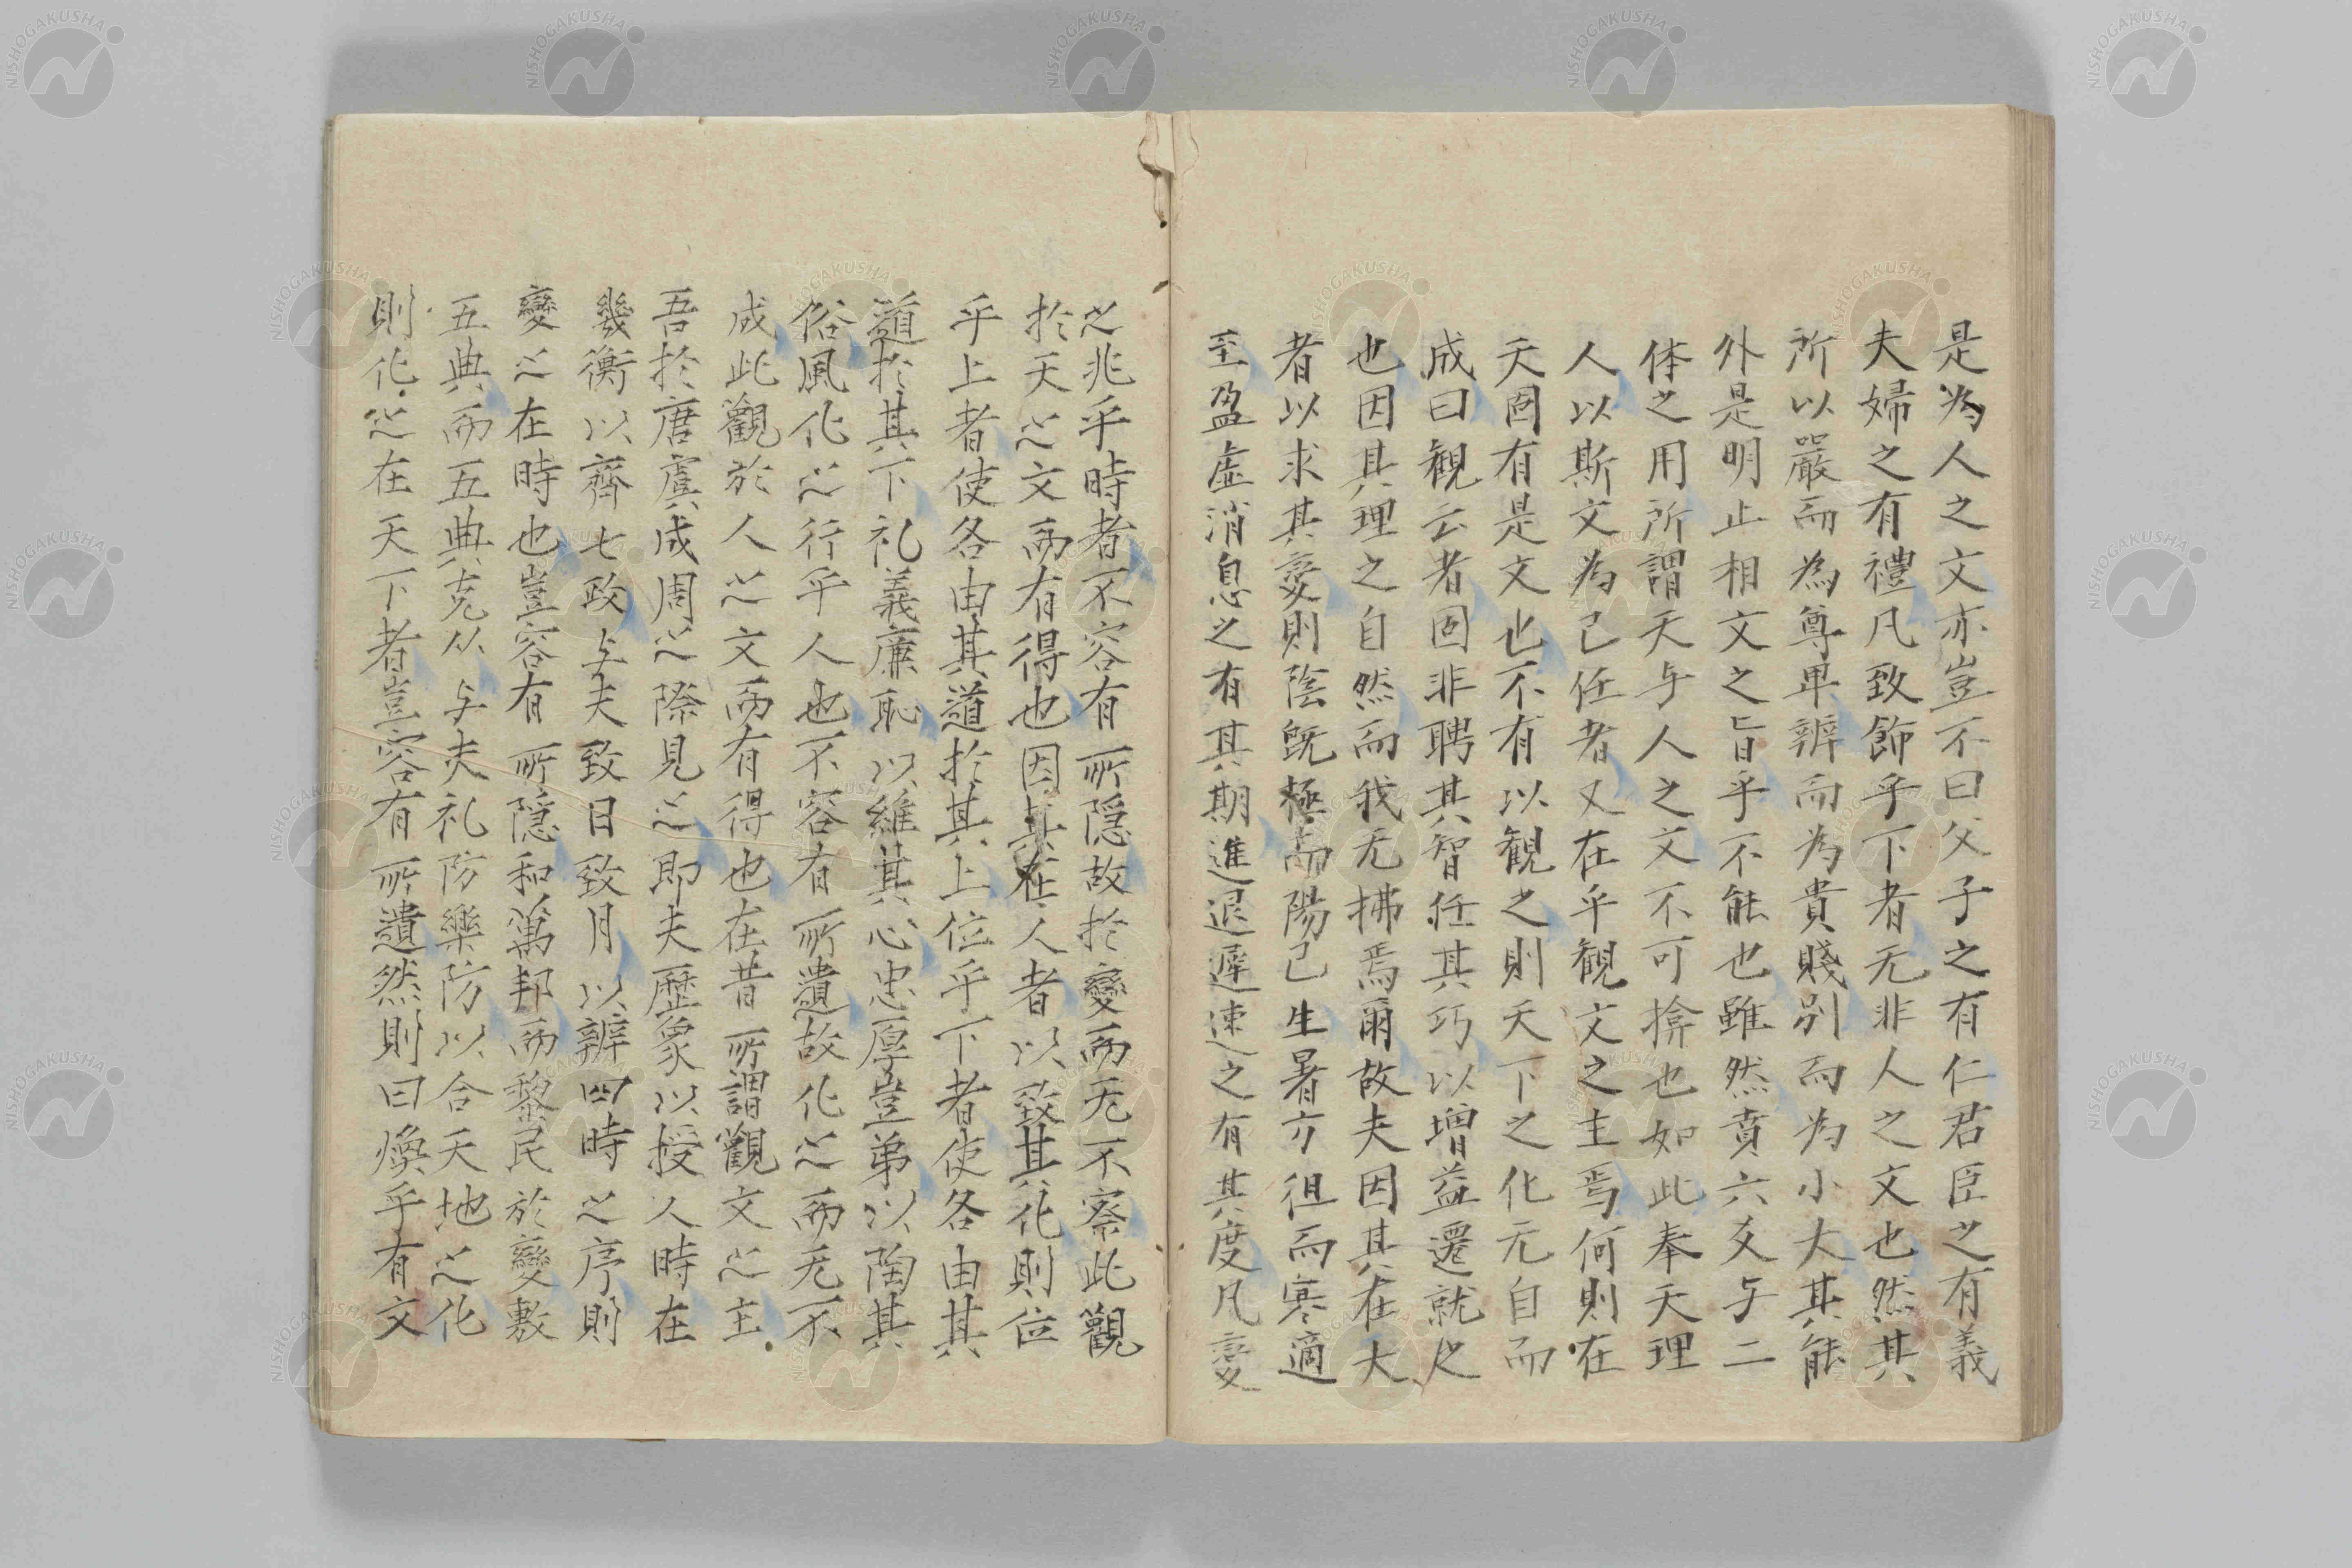 是为人之文亦豈不曰父子之有仁君臣之有義
夫婦之有禮凡致飾乎下者无非人之文也然其
所以嚴而為尊卑辨而為貴賤別而为小大其能
外是明止相文之旨乎不能也雖然賁六爻与二
体之用所謂天与人之文不可揜也如此奉天理
人以斯文為己任者又在乎觀文之主焉何則在
天固有是文也不有以觀之則天下之化无自而
成曰觀云者固非聘其智任其巧以增益遷就之
也因其理之自然而我无拂焉爾故夫因其在大
者以求其変則陰既極而陽已生暑方徂而寒適
至盈虛消息之有其期進退遲速之有其度凡変
之兆乎時者不容有所隱故於變而无不察此觀
於天之文而有得也因其在人者以致其化則位
乎上者使各由其道於其上位乎下者使各由其
道於其下礼義廉恥以維其心忠厚豈弟以陶其
俗風化之行乎人也不容有所遺故化之而无不
成此觀於人之文而有得也在昔所謂觀文之主
吾於唐虞成周之際見之即夫歷象以授人時在
幾衡以齊七政与夫致日致月以辨四時之序則
變之在時也豈容有所隱和萬邦而黎民於變敷
五典而五典克从与夫礼防樂防以合天地之化
則化之在天下者豈容有所遺然則曰煥乎有文
NISHOGAKUSHA